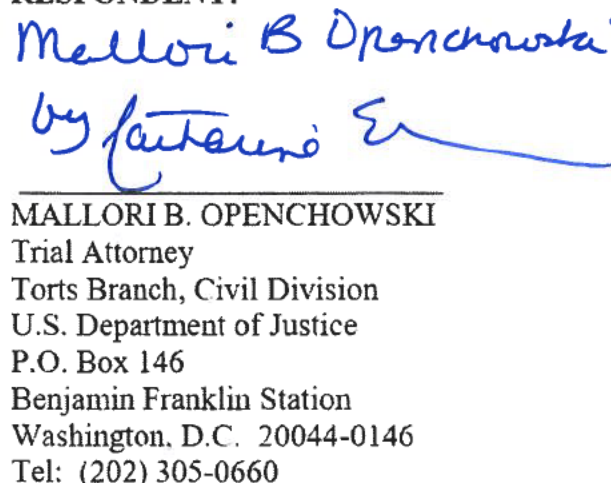 RESPONDENT:
Mallori B Openchowski
by Catharine E
MALLORI B. OPENCHOWSKI
Trial Attorney
Torts Branch, Civil Division
U.S. Department of Justice
P.O. Box 146
Benjamin Franklin Station
Washington, D.C. 20044-0146
Tel: (202) 305-0660